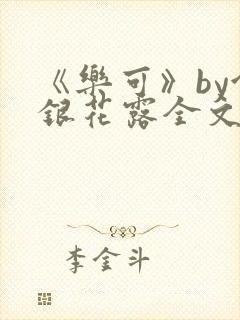 《樂可》by
銀花露全文
李金斗